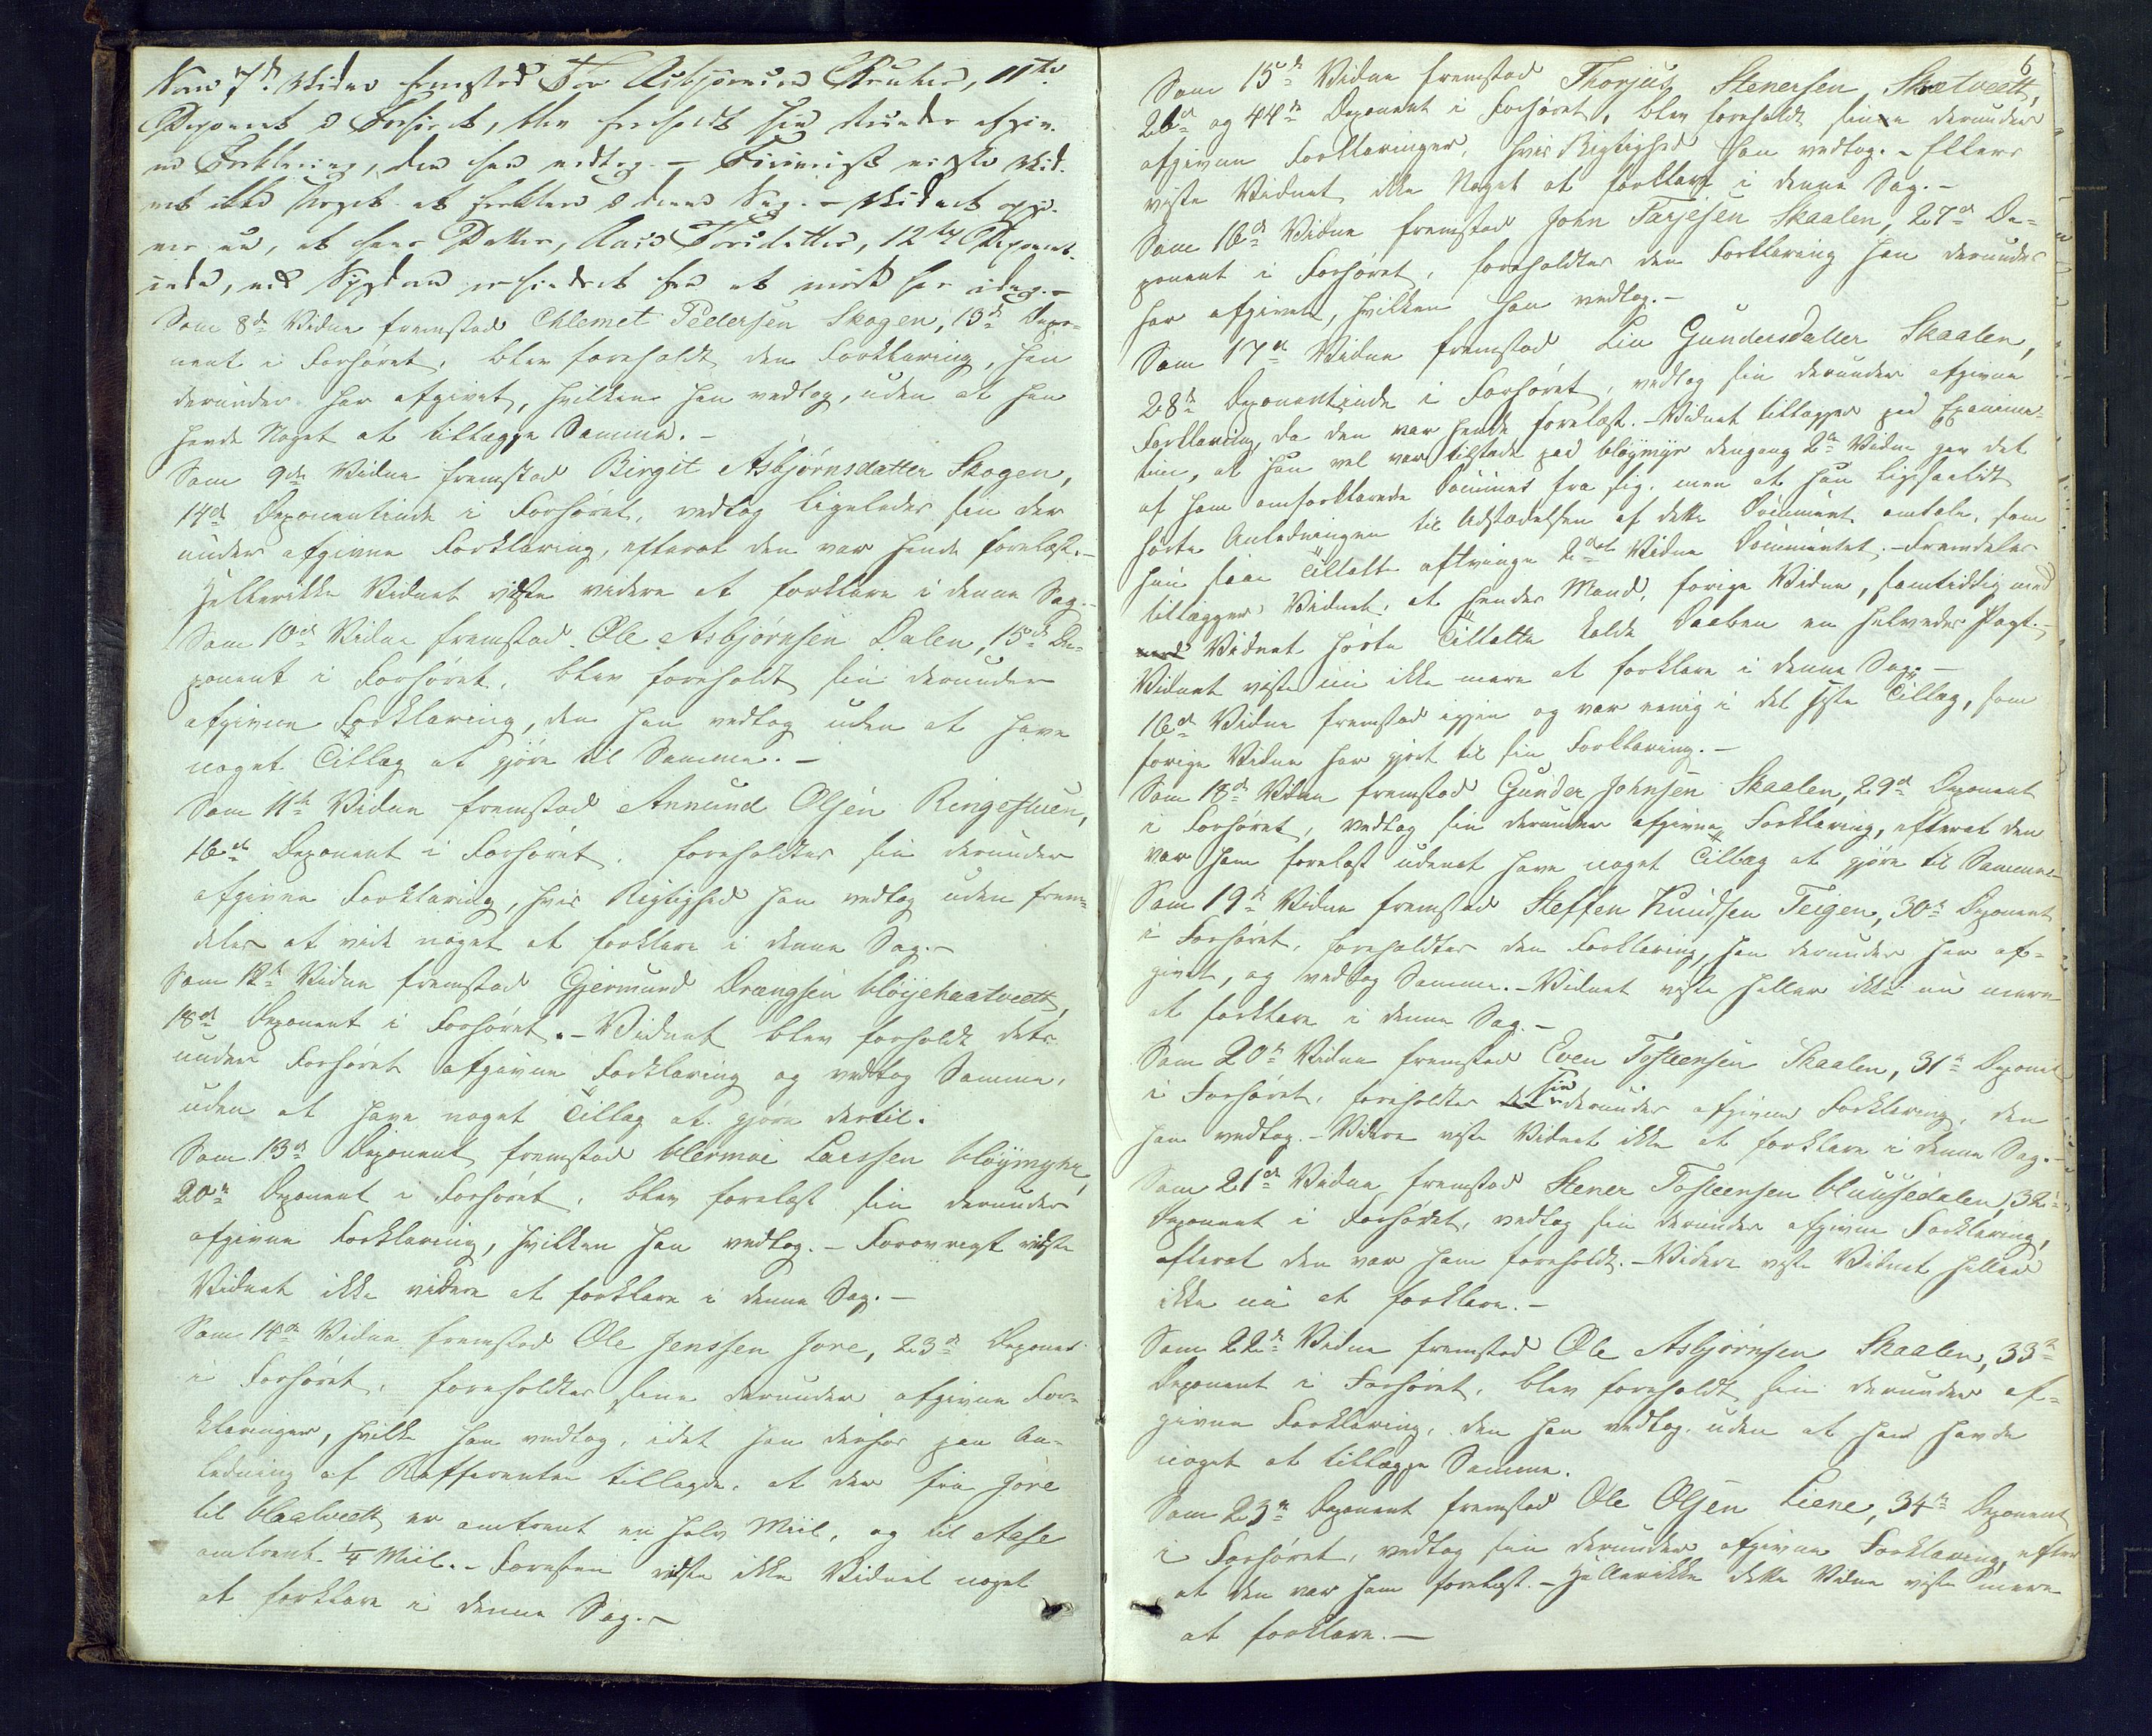 Som 7de Vidne fremstod Tor Asbjørnsen Bruhus, 11te
Deponent i Forhøret, blev foreholdt sin derunder afgiv-
ne Forklaring, den han vedtog. - Forøvrigt vidste Vid-
net ikke Noget at forklare i denne Sag. - Vidnet opgi-
ver nu, at hans Datter, Aase Torsdatter, 12te Deponent-
inde, ved Sygdom er hindret fra at møde her idag. -
Som 8de Vidne fremstod Chlemet Pedersen Skogen, 13de Depo-
nent i Forhøret, blev foreholdt den Forklaring, han
derunder har afgivet, hvilken han vedtog, uden at han
havde Noget at tillægge Samme. -
Som 9de Vidne fremstod Birgit Asbjørnsdatter Skogen,
14de Deponentinde i Forhøret, vedtog ligeledes sin der
under afgivne Forklaring, efterat den var hende forelæst. -
Hellerikke Vidnet vidste videre at forklare i denne Sag. -
Som 10de Vidne fremstod Ole Asbjørnsen Dalen, 15de De-
ponent i Forhøret, blev foreholdt sin derunder
afgivne Forklaring, den han vedtog uden at have
noget Tillæg at gjøre til Samme. -
Som 11te Vidne fremstod Annund Olsen Ringestuen,
16de Deponent i Forhøret, foreholdtes sin derunder
afgivne Forklaring, hvis Rigtighed han vedtog uden frem-
deles at vide noget at forklare i denne Sag. -
Som 12te Vidne fremstod Gjermund Drængsen Høijehaatveett,
18de Deponent i Forhøret. - Vidnet blev forholdt dets
under Forhøret afgivne Forklaring og vedtog Samme,
uden at have noget Tillæg at gjøre dertil.
Som 13de Deponent fremstod Hermoe Larssen Høijmyhr,
20de Deponent i Forhøret, blev forelæst sin derunder
afgivne Forklaring, hvilken han vedtog. - Forøvrigt vidste
Vidnet ikke videre at forklare i denne Sag. -
Som 14de Vidne fremstod Ole Jenssen Jore, 23de Deponent
i Forhøret, foreholdtes sine derunder afgivne For-
klaringer, hvilke han vedtog, idet han derhos paa An-
ledning af Refferenten tillagde, at der fra Jore
til Haatveett er omtrent en halv Miil, og til Aase
omtrent 1/4 Miil. - Foresten vidste ikke Vidnet noget
at forklare i denne Sag. -
6
Som 15de Vidne fremstod Thorjus Stenersen Skætveett,
26de og 44de Deponent i Forhøret, blev foreholdt sine derunder
afgivne Forklaringer, hvis Rigtighed han vedtog. - Ellers
viste Vidnet ikke Noget at forklare i denne Sag. -
Som 16de Vidne fremstod John Tarjesen Skaalen, 27de De-
ponent i Forhøret, foreholdtes den Forklaring han derunder
har afgivet, hvilken han vedtog. -
Som 17de Vidne fremstod Liv Gundersdatter Skaalen,
28de Deponentinde i Forhøret, vedtog sin derunder afgivne
Forklaring, da den var hende forelæst. - Vidnet tillægger paa Examina-
tion, at hun vel var tilstede paa Høijmyr dengang 2de Vidne gav det
af ham omforklarede Document fra sig, men at hun ligesaalidt
hørte Anledningen til Udstædelsen af dette Document omtale, som
hun saae Tiltalte aftvinge 2det Vidne Documentet. - Fremdeles
tillægger Vidnet, at hendes Mand, forige Vidne, samtidig med
Vidnet hørte Tiltalte kalde Daaben en Helvedes Pagt. -
Vidnet viste nu ikke mere at forklare i denne Sag. -
16de Vidne fremstod igjen og var eenig i det sidste Tillæg, som
forige Vidne har gjort til sin Forklaring. -
Som 18de Vidne fremstod Gunder Johnsen Skaalen, 29de Deponent
i Forhøret, vedtog sin derunder afgivne Forklaring, efterat den
var ham forelæst udenat have noget Tillæg at gjøre til Samme. -
Som 19de Vidne fremstod Steffen Knudsen Teigen, 30te Deponent
i Forhøret, foreholdtes den Forklaring, han derunder har af-
givet, og vedtog Samme. - Vidnet viste heller ikke nu mere
at forklare i denne Sag. -
Som 20de Vidne fremstod Even Tosteensen Skaalen, 31te Deponent
i Forhøret, foreholdtes sin derunder afgivne Forklaring, den
han vedtog. - Videre viste Vidnet ikke at forklare i denne Sag. -
Som 21de Vidne fremstod Stener Tosteensen Huusedalen, 32te
Deponent i Forhøret, vedtog sin derunder afgivne Forklaring,
efterat den var ham foreholdt. - Videre viste Vidnet heller
ikke nu at forklare. -
Som 22de Vidne fremstod Ole Asbjørnsen Skaalen, 33te
Deponent i Forhøret, blev foreholdt sin derunder af-
givne Forklaring, den han vedtog uden at han havde
noget at tillægge Samme.
Som 23de Deponent fremstod Ole Olsen Liene, 34te Deponent
i Forhøret, vedtog sin derunder afgivne Forklaring, efter
at den var ham forelæst. - Hellerikke dette Vidne viste mere
at forklare. -